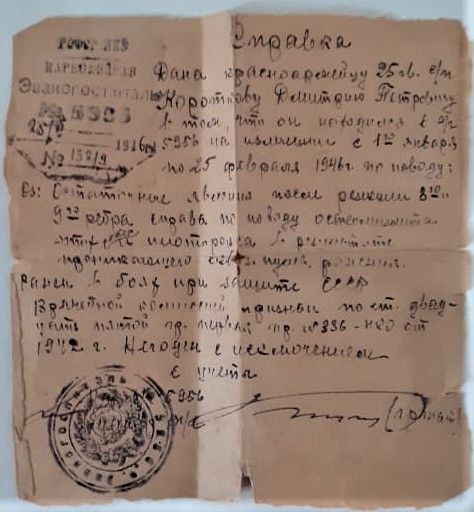 РСФСР НКЗ
НАРКОМЗДРАВ
Эвакогоспиталь
№ 5956
25/II 1946 г.
№ 132/9
Справка
Дана красноармейцу 25 гв. с/п
Короткову Дмитрию Петровичу
в том, что он находился в э/г
5956 на излечении с 1го января
по 25 февраля 1946 г по поводу:
Ds: Остаточные явления после резекции 8го и
9го ребра справа по поводу остеомиелита
этих
проникающего ранения.
Ранен в боях при защите СССР
Врачебной комиссией признан по ст. двад-
цать пятой гр. первая пр. № 336 - НКО от
1942 г. Негоден с исключением
с учета
5956